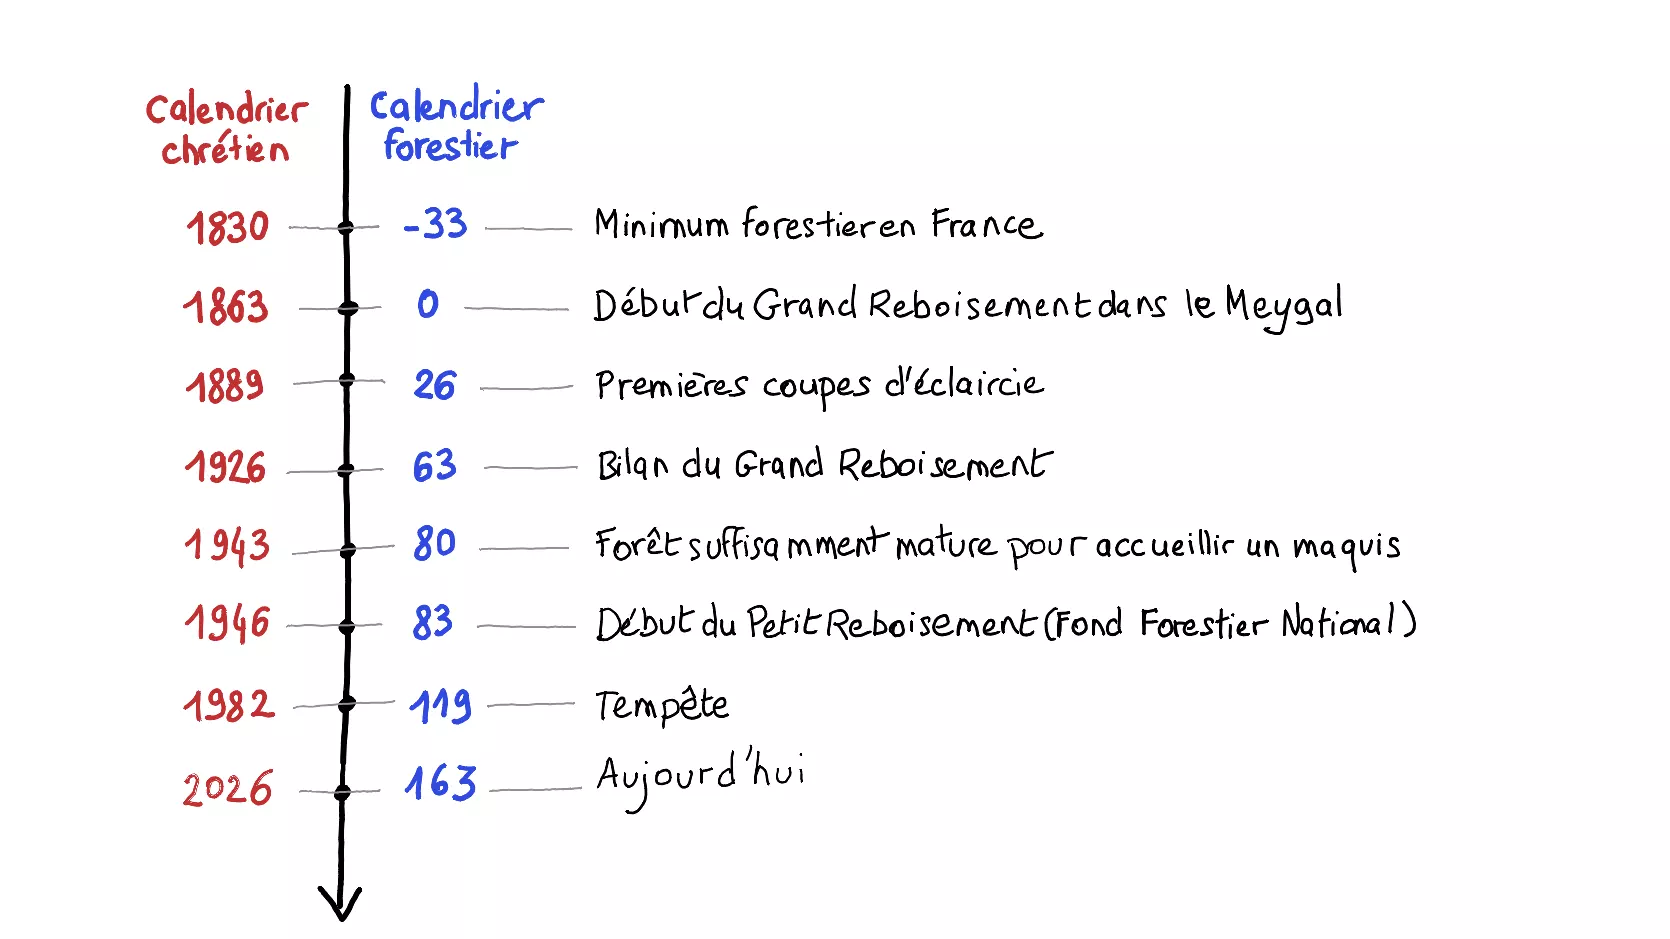 Calendrier chrétien
Calendrier forestier
1830 -33 Minimum forestier en France
1863 0 Début du Grand Reboisement dans le Meygal
1889 26 Premières coupes d'éclaircie
1926 63 Bilan du Grand Reboisement
1943 80 Forêt suffisamment mature pour accueillir un maquis
1946 83 Début du Petit Reboisement (Fond Forestier National)
1982 119 Tempête
2026 163 Aujourd'hui